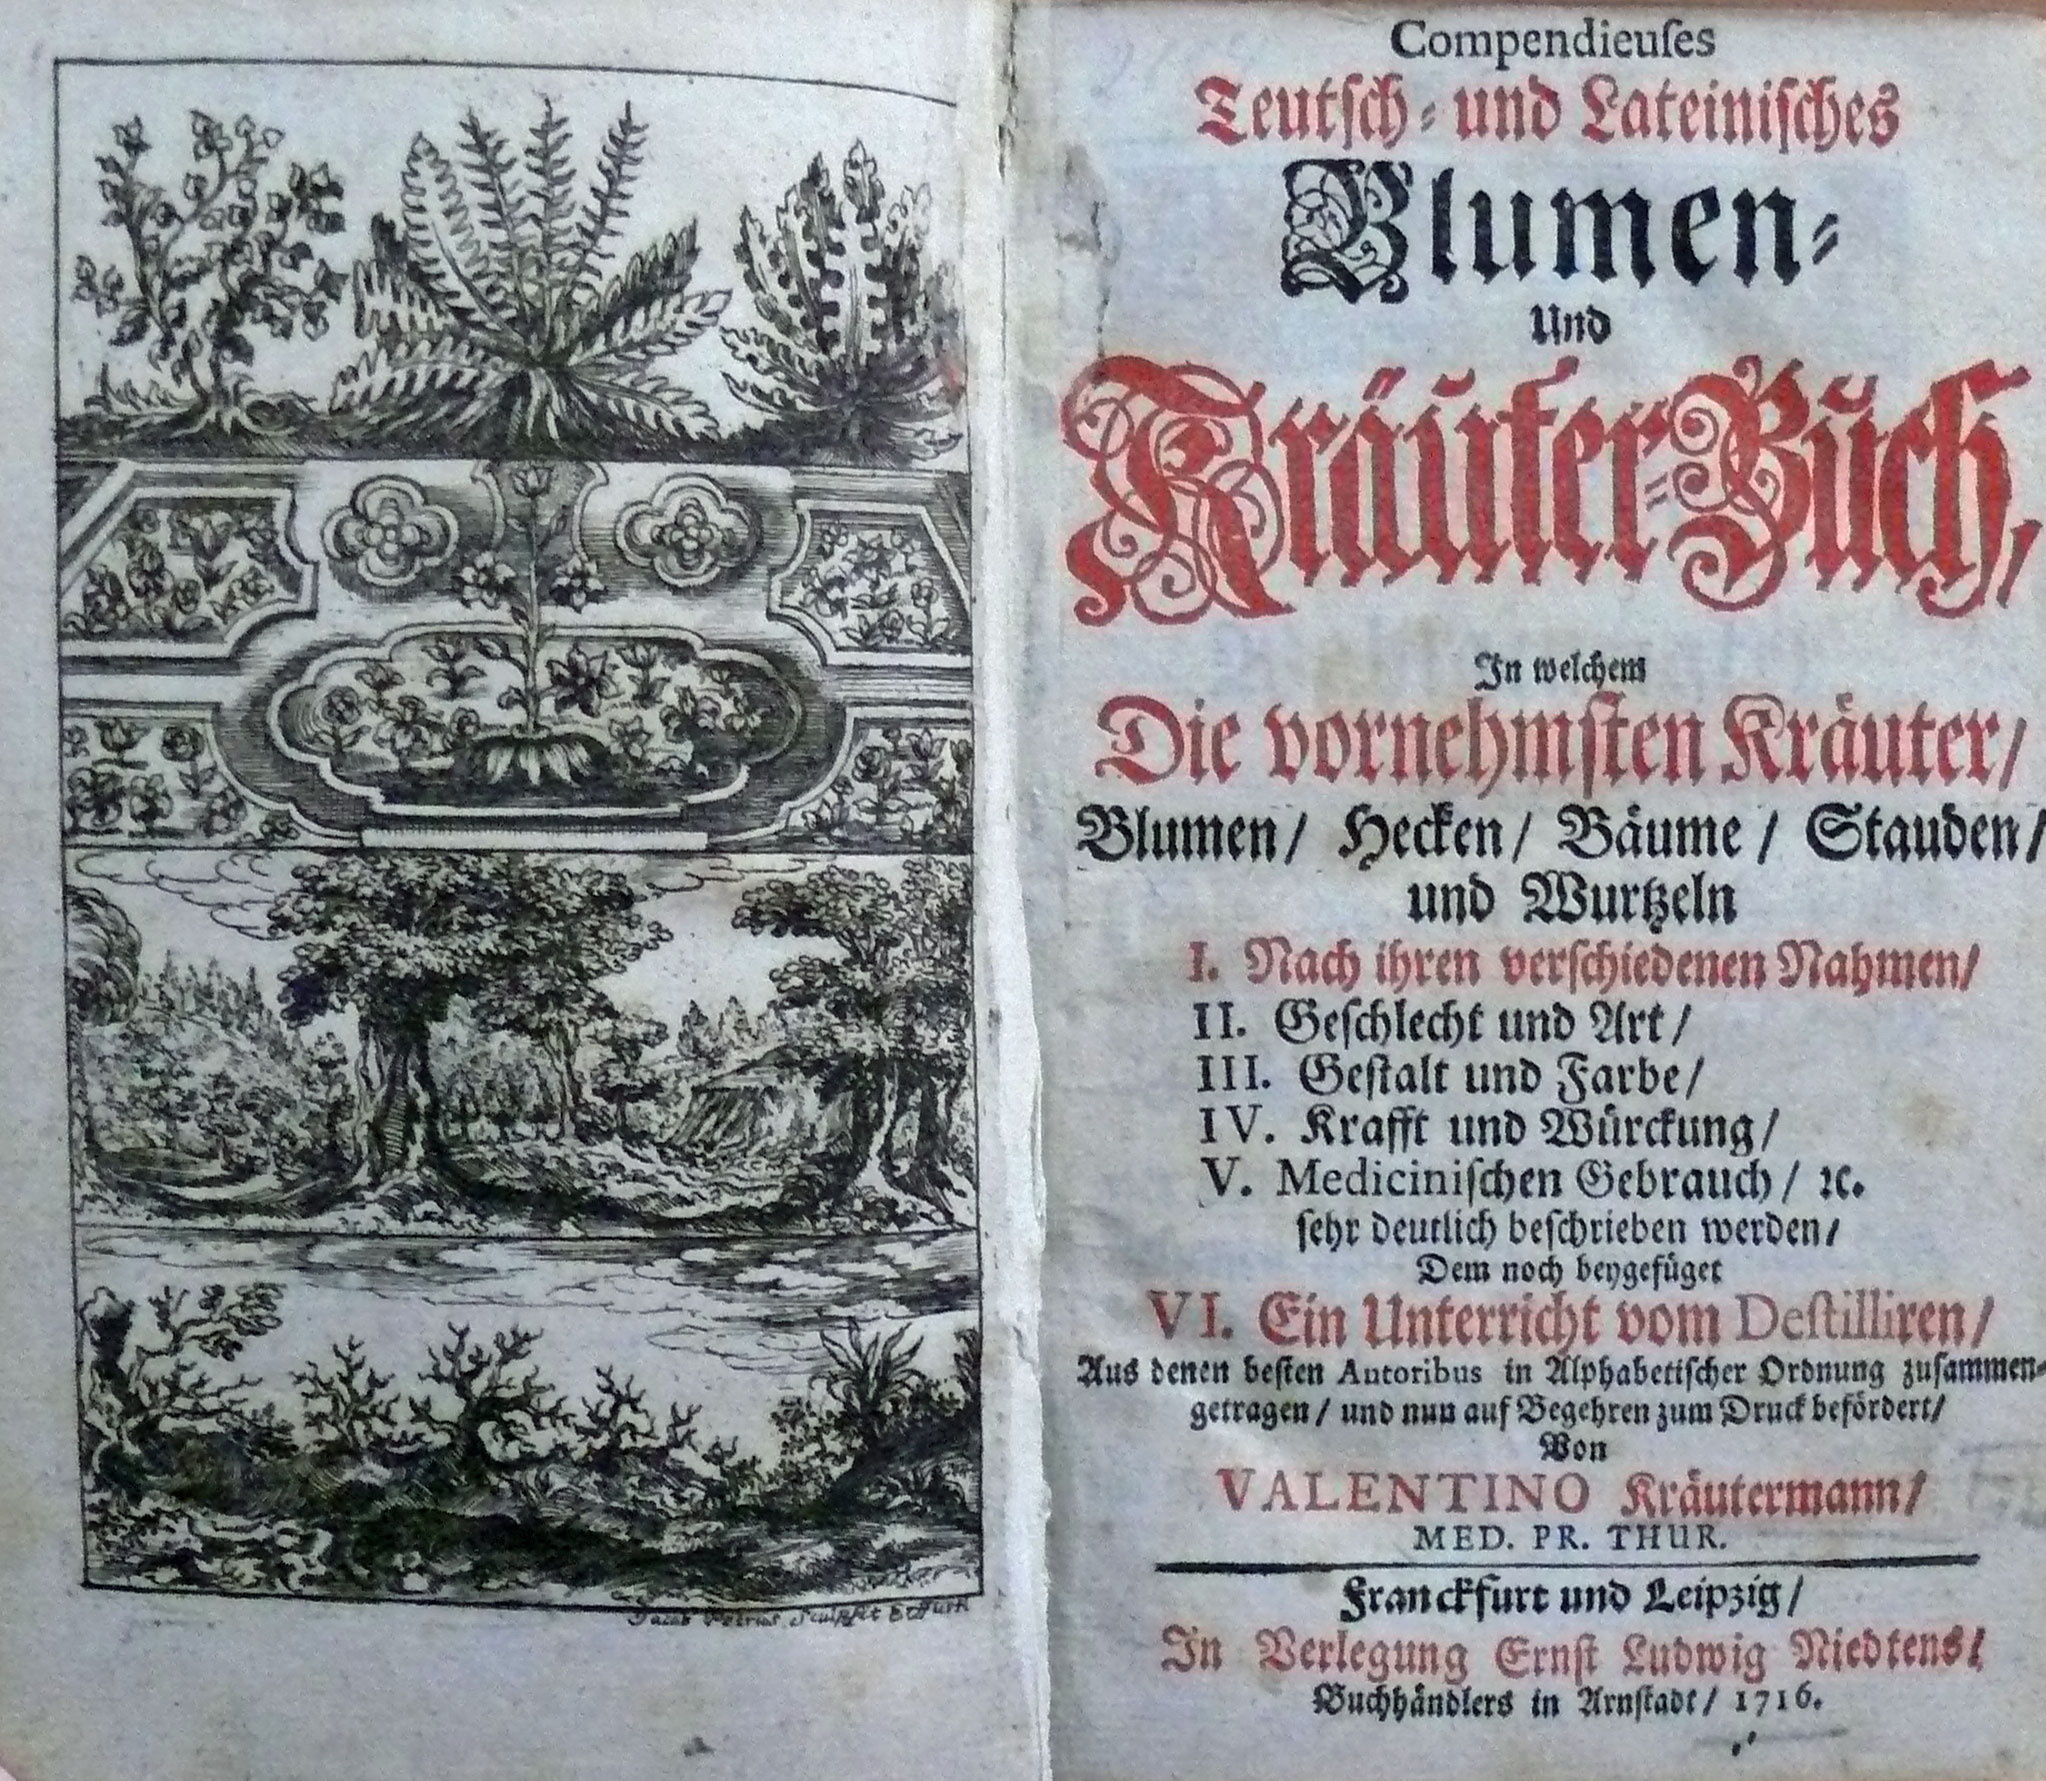 Jacob Petrus Sculpsit Erffurth
Compendieuſes
Teutſch- und Lateiniſches
Blumen-
Und
Kräuter-Buch,
In welchem
Die vornehmſten Kräuter/
Blumen/ Hecken/ Bäume/ Stauden/
und Wurtzeln
I. Nach ihren verſchiedenen Nahmen/
II. Geſchlecht und Art/
III. Geſtalt und Farbe/
IV. Krafft und Würckung/
V. Mediciniſchen Gebrauch/ ꝛc.
ſehr deutlich beſchrieben werden/
Dem noch beygefüget
VI. Ein Unterricht vom Deſtilliren/
Aus denen beſten Autoribus in Alphabetiſcher Ordnung zuſammen-
getragen/ und nun auf Begehren zum Druck befördert/
Von
VALENTINO Kräutermann/
MED. PR. THUR.
Franckfurt und Leipzig/
In Verlegung Ernſt Ludwig Niedtens/
Buchhändlers in Arnſtadt/ 1716.